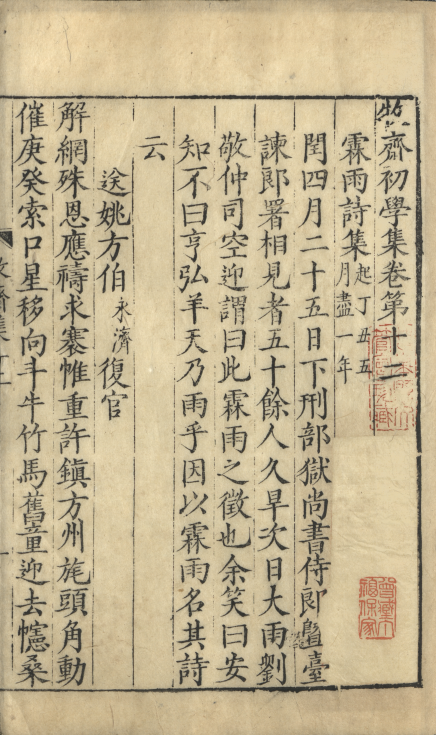 牧齋初學集卷第十二
霖雨詩集起丁丑五月盡一年
閏四月二十五日下刑部獄尚書侍郎暨臺
諫郎署相見者五十餘人久旱次日大雨劉
敬仲司空迎謂曰此霖雨之徵也余笑曰安
知不曰亨弘羊天乃雨乎因以霖雨名其詩
云
送姚方伯永濟復官
解網殊恩應禱求褰帷重許鎮方州旄頭角動
催庚癸索口星移向斗牛竹馬舊童迎去幰桑